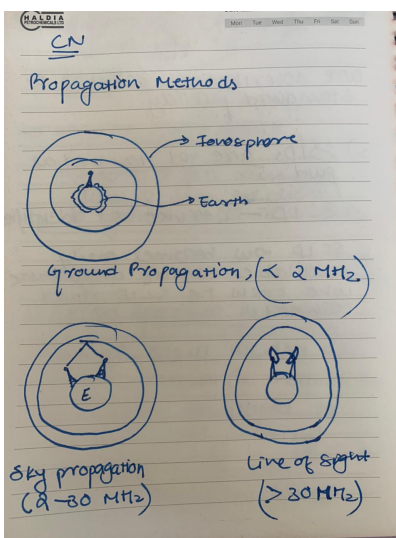 HALDIA
PETROCHEMICALS LTD
Mon Tue Wed Thu Fri Sat Sun
CN
Propagation Methods
Ionosphere
Earth
Ground Propagation, (< 2 MHz)
E
Sky propagation
(2-30 MHz)
Line of Sight
(>30 MHz)